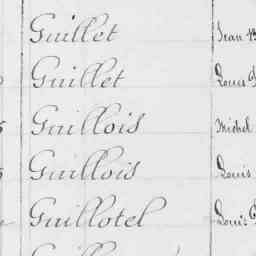 Guillet Jean
Guillet Louis
Guillois Michel
Guillois Louis
Guillotel Louis